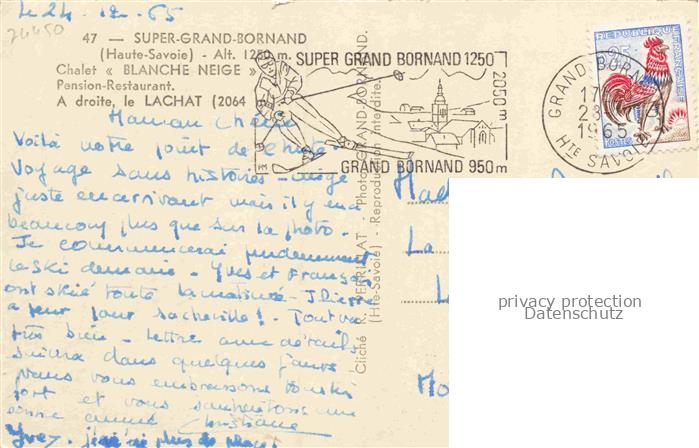 Le 24-12-65
74450
47 — SUPER-GRAND-BORNAND
(Haute-Savoie) - Alt. 1250 m.
Chalet « BLANCHE NEIGE »
Pension-Restaurant.
A droite, le LACHAT (2064
SUPER GRAND BORNAND 1250
2050 m
GRAND BORNAND 950 m
GRAND BORN
17
23
1965
HTE SAVOIE
Cliché R. PERRILLAT - Photo GRAND-BORNAND.
(Hte-Savoie) - Reproduction interdite.
Maman Chérie
Voilà notre point de chute
Voyage sans histoires - neige
juste en arrivant mais il y en a
beaucoup plus que sur la photo.
Je commencerai prudemment
le ski demain - Yves et François
ont skié toute la matinée - J. Pierre
a peur pour sa cheville ! Tout va
très bien - lettre avec détails
suivra dans quelques jours
nous vous embrassons tous
fort et vous souhaitons une
bonne année Christiane
Yves - j'ai plus de place
La
privacy protection
Datenschutz